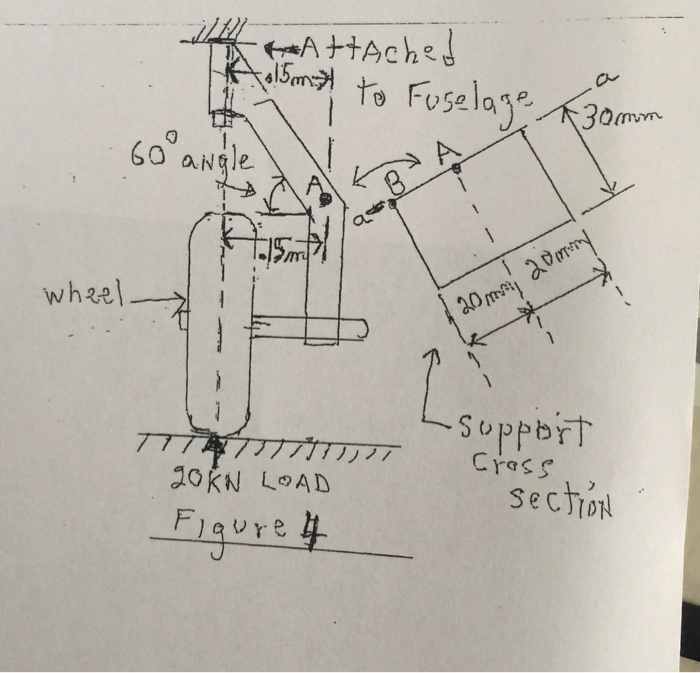 Attached
to Fuselage
.15m
a
30mm
60° angle
A
A
B
a
.15m
20mm
20mm
wheel
support
cross
section
20KN LOAD
Figure 4